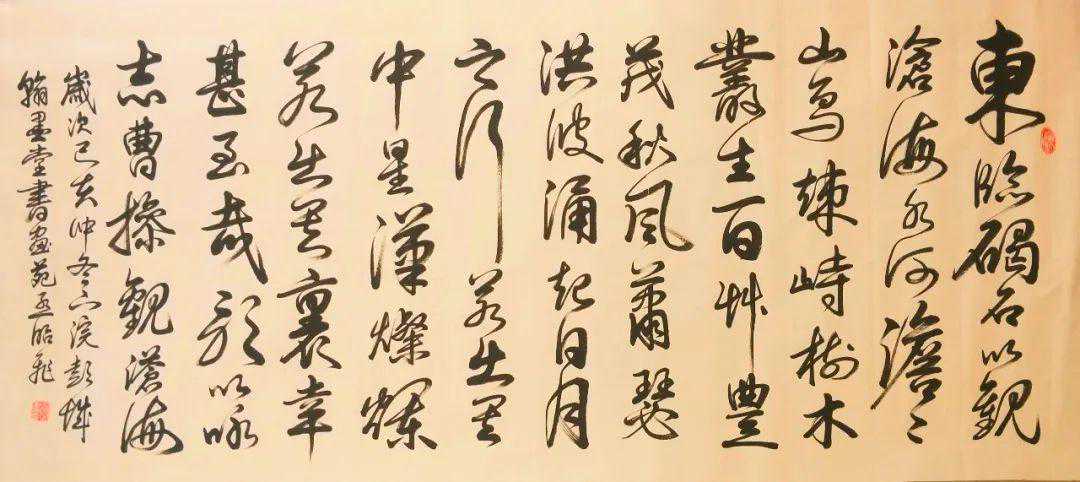 東臨碣石以觀
滄海水何澹〻
山島竦峙樹木
叢生百艸豐
茂秋風蕭瑟
洪波涌起日月
之行若出其
中星漢燦爛
若出其裏幸
甚至哉歌以咏
志曹操觀滄海
歲次己亥仲冬浣彭城
翰墨堂書畫苑孟昭飛